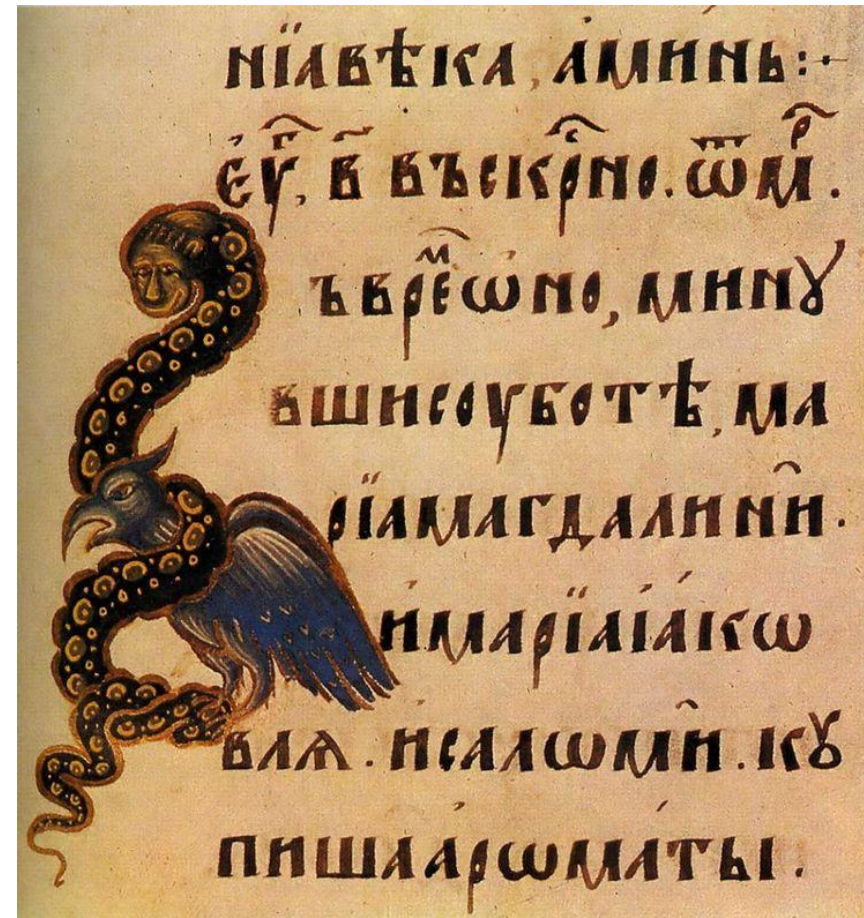 нїавѣка, а́минь:·
є҆уⷢ҇. в҃ въскрⷭ҇но. ѿмⷬ҇.
ъврⷨеѡно, минꙋ
вшисоуботѣ, ма
рїамагдалини҆.
имарїаіа́кѡ
влѧ. исалѡми҆. кꙋ
пишаарѡма́ты.